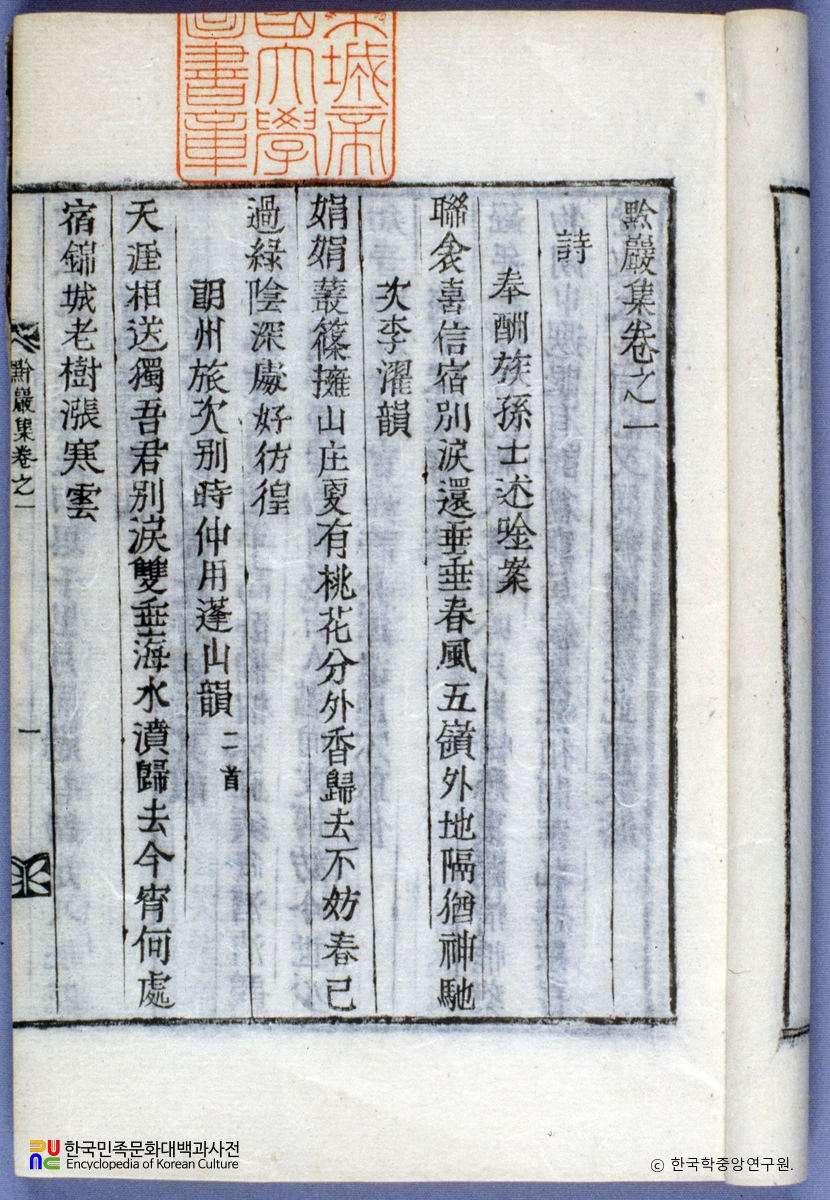 黔巖集卷之一
詩
奉酬族孫士述唑案
聯衾喜信宿別淚還垂垂春風五嶺外地隔猶神馳
次李濯韻
娟娟叢篠擁山庄夏有桃花分外香歸去不妨春已
過綠陰深處好彷徨
朗州旅次別時仲用蓬山韻 二首
天涯相送獨吾君別淚雙垂海水濆歸去今宵何處
宿錦城老樹漲寒雲
黔巖集卷之一
一
城帝
大學
圖書章
한국민족문화대백과사전
Encyclopedia of Korean Culture
© 한국학중앙연구원.